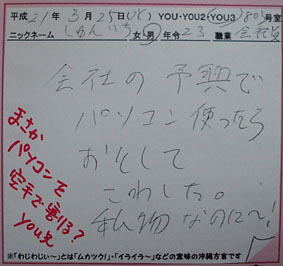 平成21年3月25日(水) YOU・YOU2・YOU3 80号室
ニックネーム しゅんいち 女・男 年令23 職業 会社員
会社の予興で
パソコン使ったら
おとして
こわした。
私物なのに〜!
まさか
パソコンを
空手で割る?
YOU兄
※「わじわじぃ〜」とは「ムカツク!」・「イライラ〜」などの意味の沖縄方言です